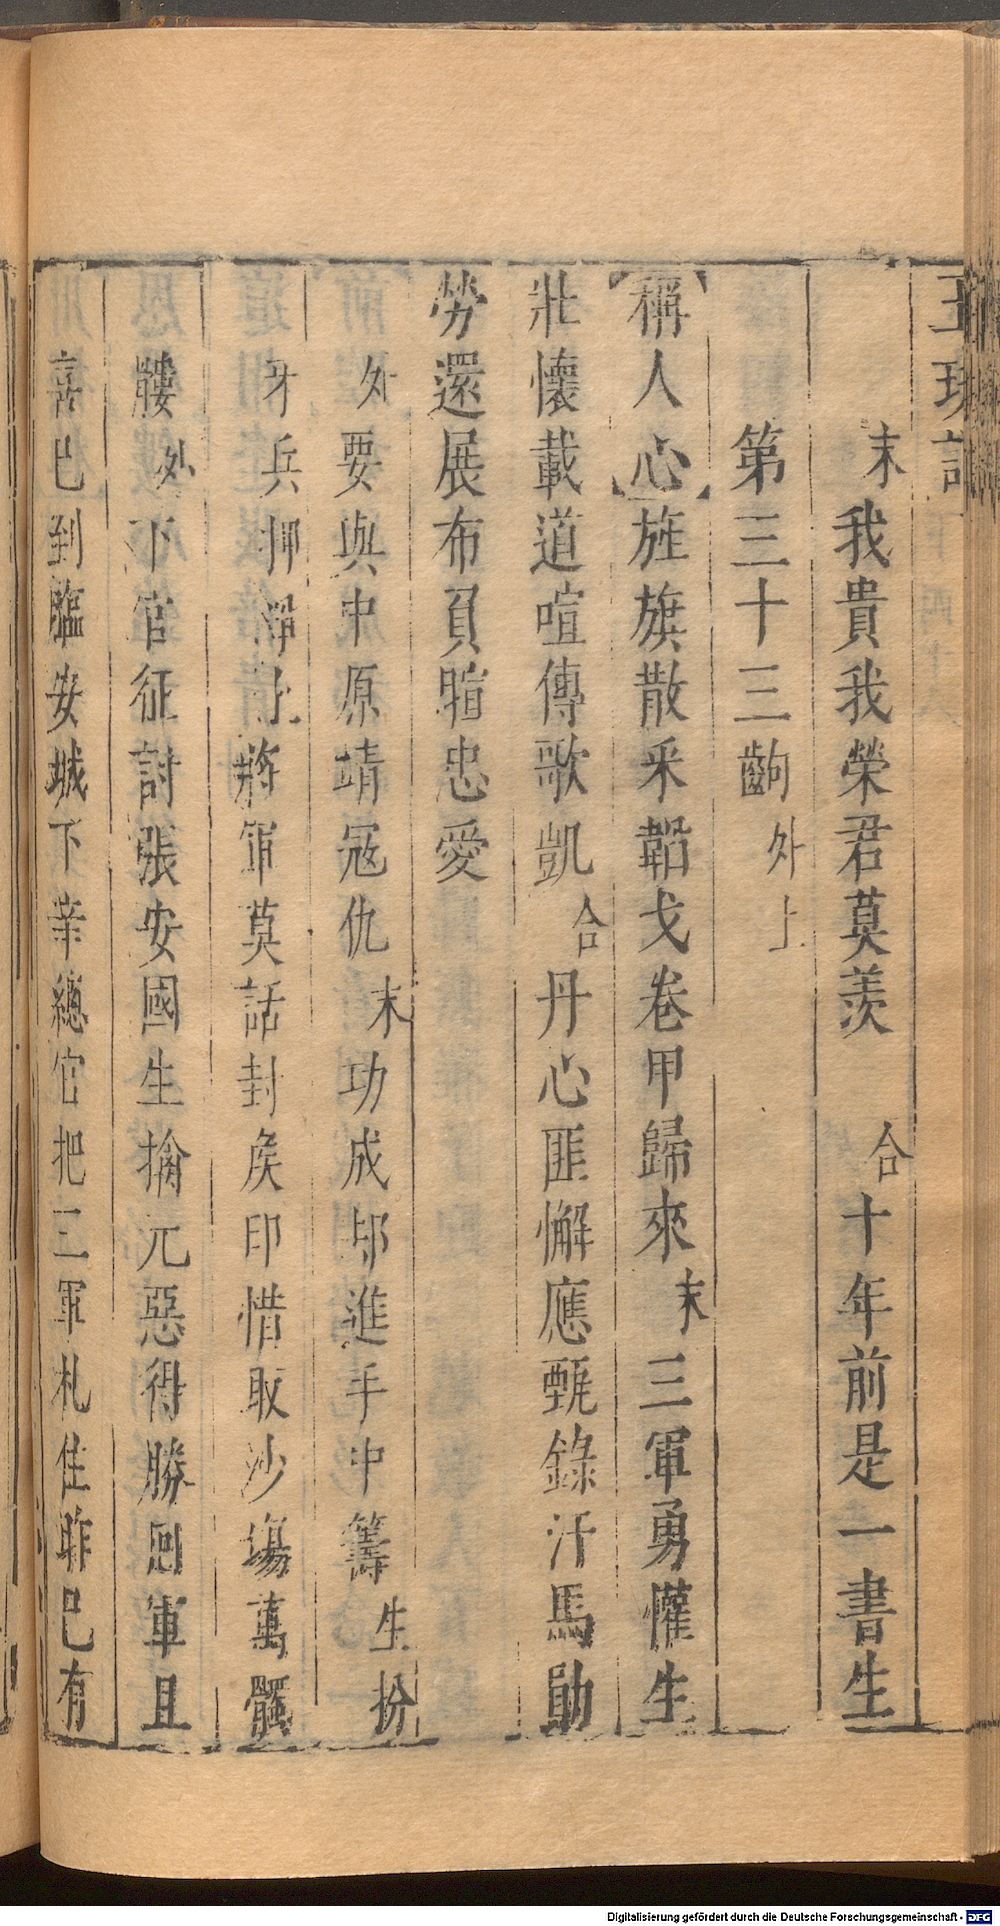 玉玦記
末我貴我榮君莫羨　合十年前是一書生
第三十三齣　外上
【稱人心】旌旗散釆韜戈卷甲歸來末三軍勇懽生
壯懷載道喧傳歌凱合丹心匪懈應甄錄汗馬勛
勞還展布負暄忠愛
外要與中原靖冦仇末功成却進手中籌生扮
牙兵押淨上將軍莫話封侯印惜取沙塲萬髑
髏外下官征討張安國生擒元惡得勝囘軍且
喜巳到臨安城下辛總官把三軍札住昨巳有
Digitalisierung gefördert durch die Deutsche Forschungsgemeinschaft - DFG